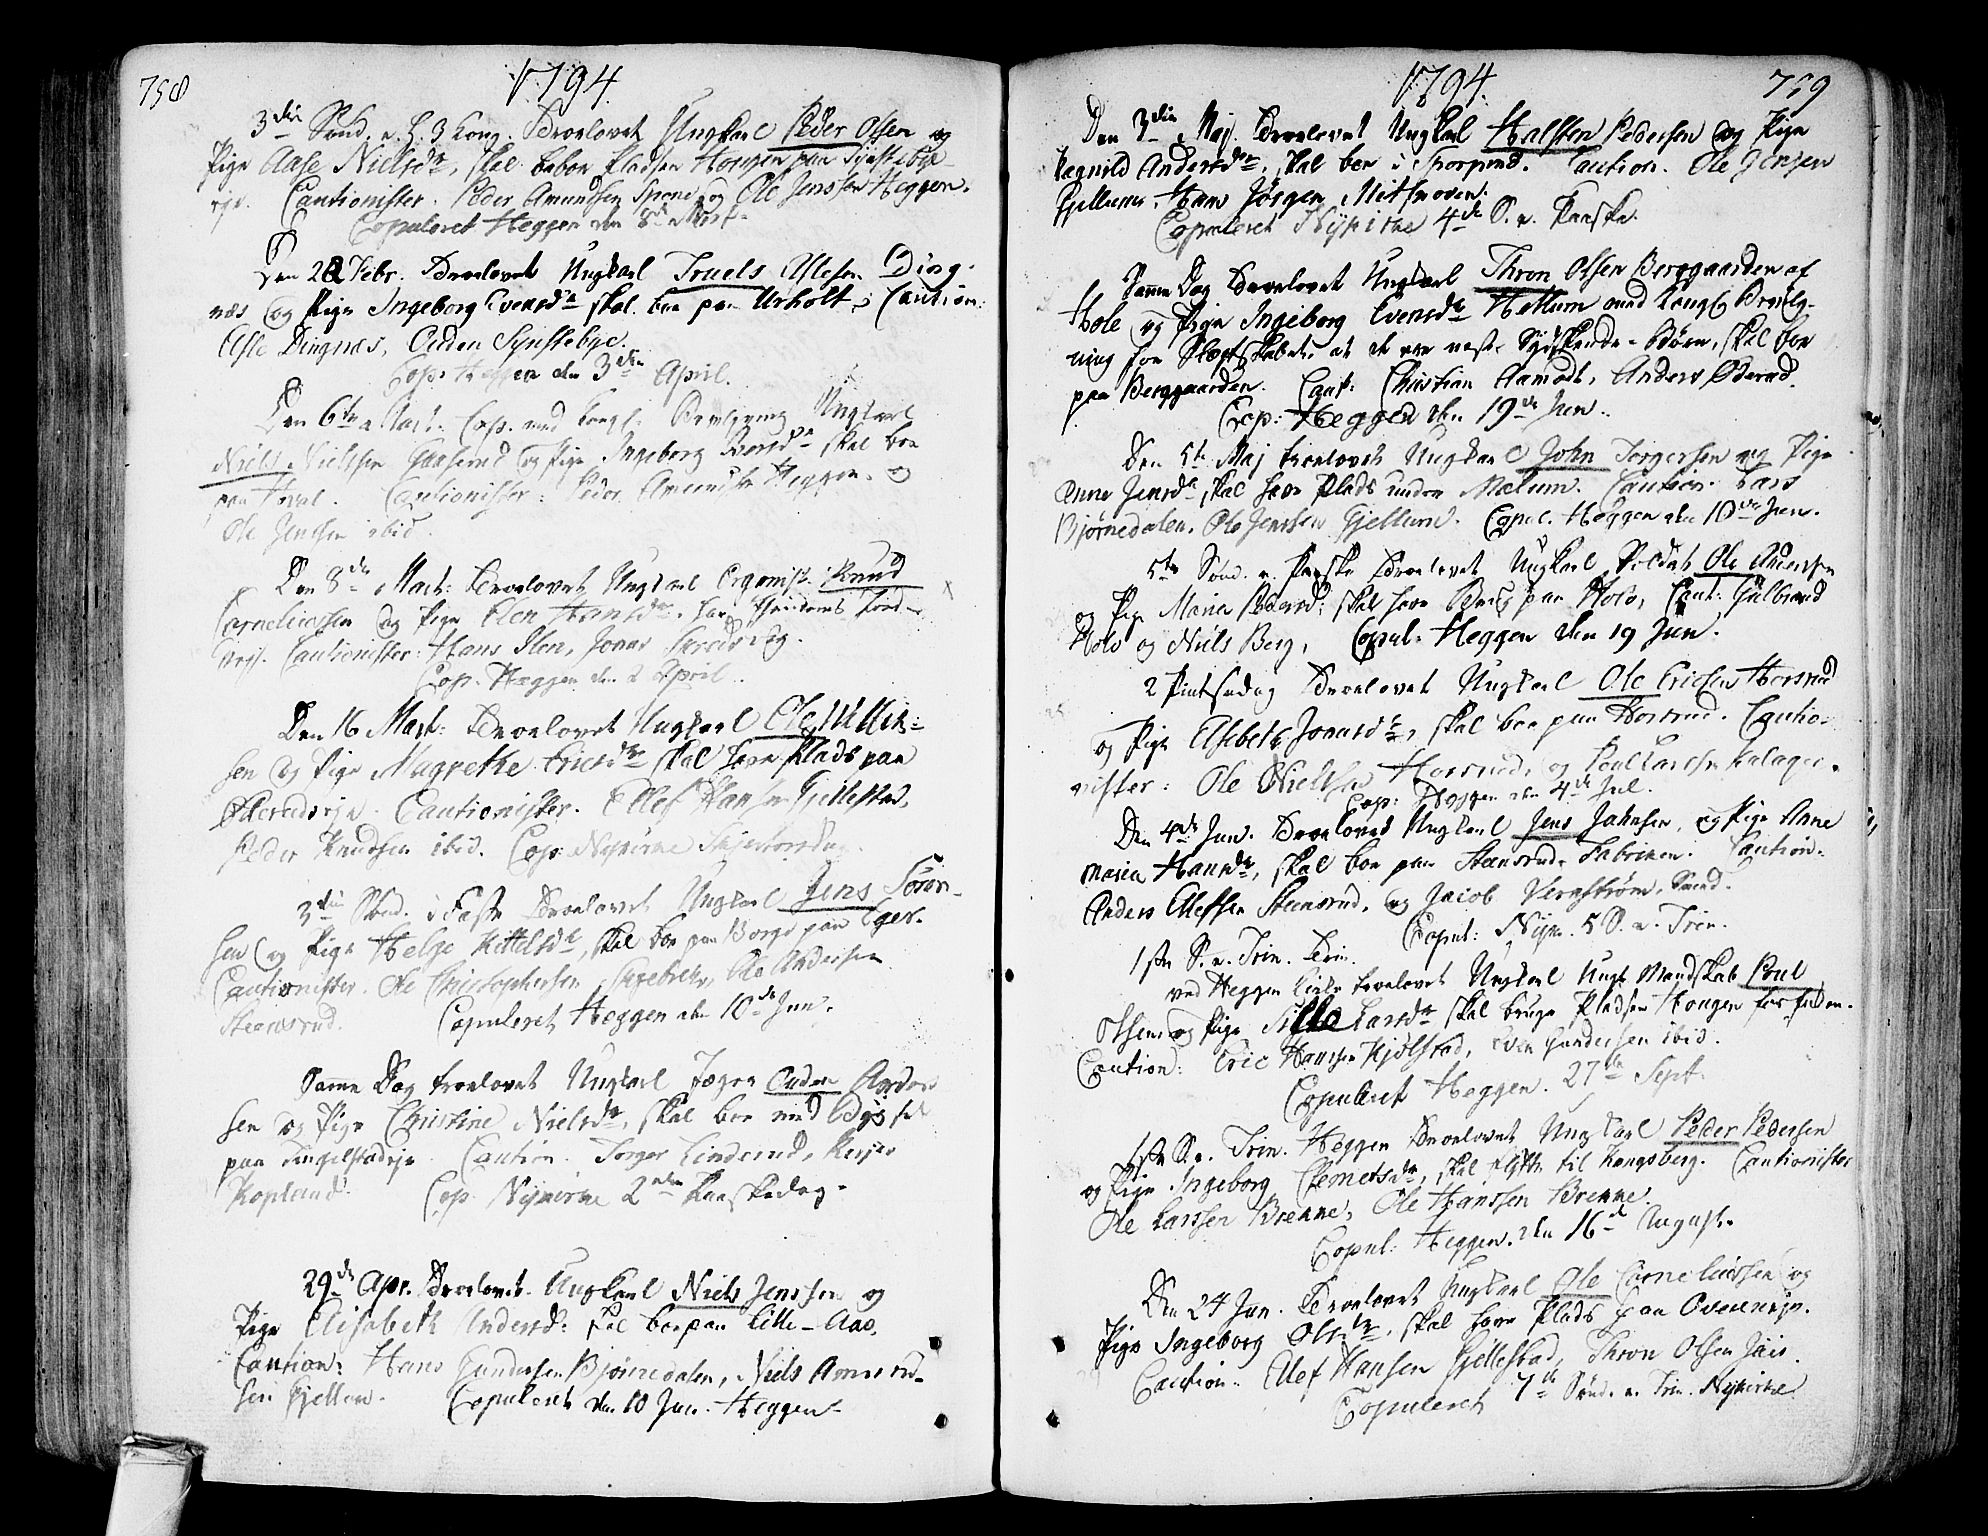 758
1794.
3die Sønd. e. H. 3 Kong. Troelovet Ungkarl Peder Olsen og
Pige Aase Nielsdr, skal beboe Pladsen Horgen paa
eje. Cautionister. Peder Amundsen Spone og Ole Jenssen Heggen.
Copuleret Heggen den 8de
Den 28 Febr. Troelovet Ungkarl Truels Aslesen Ding-
næs og Pige Ingeborg Evensdr skal boe paa Urholt. Caution:
Asle Dingnæs, Auden Synstebye.
Cop. Heggen den 3die April.
Den 6te Mart. Cop. med Kongl. Bevilgning Ungkarl
Niels Nielssen og Pige Ingeborg skal boe
paa Cautionister: Peder Amundsen Heggen og
Ole Jenssen ibid.
Den 8de Mart: Troelovet Ungkarl Organist Knud
Corneliussen og Pige Elen Hansdr,
Cautionister: Hans Ilen, Jonas
Cop. Heggen den 2 April.
Den 16 Mart: Troelovet Ungkarl Ole
sen og Pige Magrethe Ericsdr skal have Plads paa
Øderudseje. Cautionister. Ellef Hansen Gjellestad,
Peder Knudsen ibid. Cop: Nykirke Skjertorsdag.
3die Sønd. i Faste Troelovet Ungkarl Jens Søren-
sen og Pige Helge Kittelsdr, skal boe paa Borge paa Eger.
Cautionister. Ole Christophersen Ole Andersen
Steensrud. Copuleret Heggen den 10de Jun.
Samme Dag troelovet Ungkarl Jæger Auden
sen og Pige Christine Nielsdr, skal boe med
paa Tingelstadeje Caution. Torger Linderud,
Kopland. Cop. Nykirke 2den Paaskedag.
29de Apr. Troelovet Ungkarl Niels Jenssen og
Pige Elisabeth Andersd: skal boe paa Lille-Aas,
Caution: Hans Gundersen Bjørnedalen, Niels
sen Gjellum. Copuleret den 10 Jun. Heggen
1794.
759
Den 3die Maj. Troelovet Ungkarl Halsten Pedersen og Pige
Ragnild Andersdr, skal boe i Caution. Ole Jensen
Gjellum, Hans Jørgen
Copuleret Nykirke 4de S. e. Paaske.
Samme Dag Troelovet Ungkarl Thron Olsen Berggaarden af
Hole og Pige Ingeborg Evensdr Hellum med Kongl Bevilg-
ning for Slægtskabet, at de ere næst-Sydskende-Børn, skal boe
paa Berggaarden. Caut: Christian Aamodt, Anders Øderud.
Cop: Heggen den 19de Jun.
Den 5te Maj troelovet Ungkarl John Torgersen og Pige
Anne Jensdr skal have Plads under Mælum. Caution: Lars
Bjørnedalen, Ole Jenssen Gjellum. Copul. Heggen den 10de Jun.
5te Sønd. e. Paaske Troelovet Ungkarl Soldat Ole Andersen
og Pige Maria Pedersd: skal have Brug paa Holo, Caut: Gulbrand
Holo og Niels Berg, Copul. Heggen den 19 Jun.
2 Pintsedag Troelovet Ungkarl Ole Ericsen Horsrud
og Pige Elsebeth Jonasdr, skal boe paa Horsrud. Cautio-
nister: Ole Nielsen Horsrud, og Poul Larsen
Cop: Heggen den 4de Jul.
Den 4de Jun. Troelovet Ungkarl Jens Johnsen, og Pige Anne
Maria Hansdr, skal boe paa Steensruds Fabriken. Caution.
Anders Ellefsen Steensrud, og Jacob Vernstrøm, Smed.
Copul: Nyk. 5 S. e. Trin.
1ste S. e. Trin. Trin.
ved Heggen Kirke troelovet Ungkarl Ungt Mandskab Poul
Olsen og Pige Larsdr skal bruge Pladsen Hougen
Caution: Eric Hansen Kjølstad, Even Gundersen ibid.
Copuleret Heggen. 27de Sept.
1ste S. e. Trin. Heggen troelovet Ungkarl Peder Pedersen
og Pige Ingeborg Clemetsdr, skal flytte til Kongsberg. Cautionister
Ole Larssen Brenne, Ole Hanssen Brenne.
Copul: Heggen. den 16de August.
Den 24 Jun. Troelovet Ungkarl Ole Corneliussen og
Pige Ingeborg Olsdr, skal have Plads paa Overneje.
Caution. Ellef Hansen Gjellestad, Thron Olsen
Copuleret 7de Sønd. e. Trin. Nykirke.